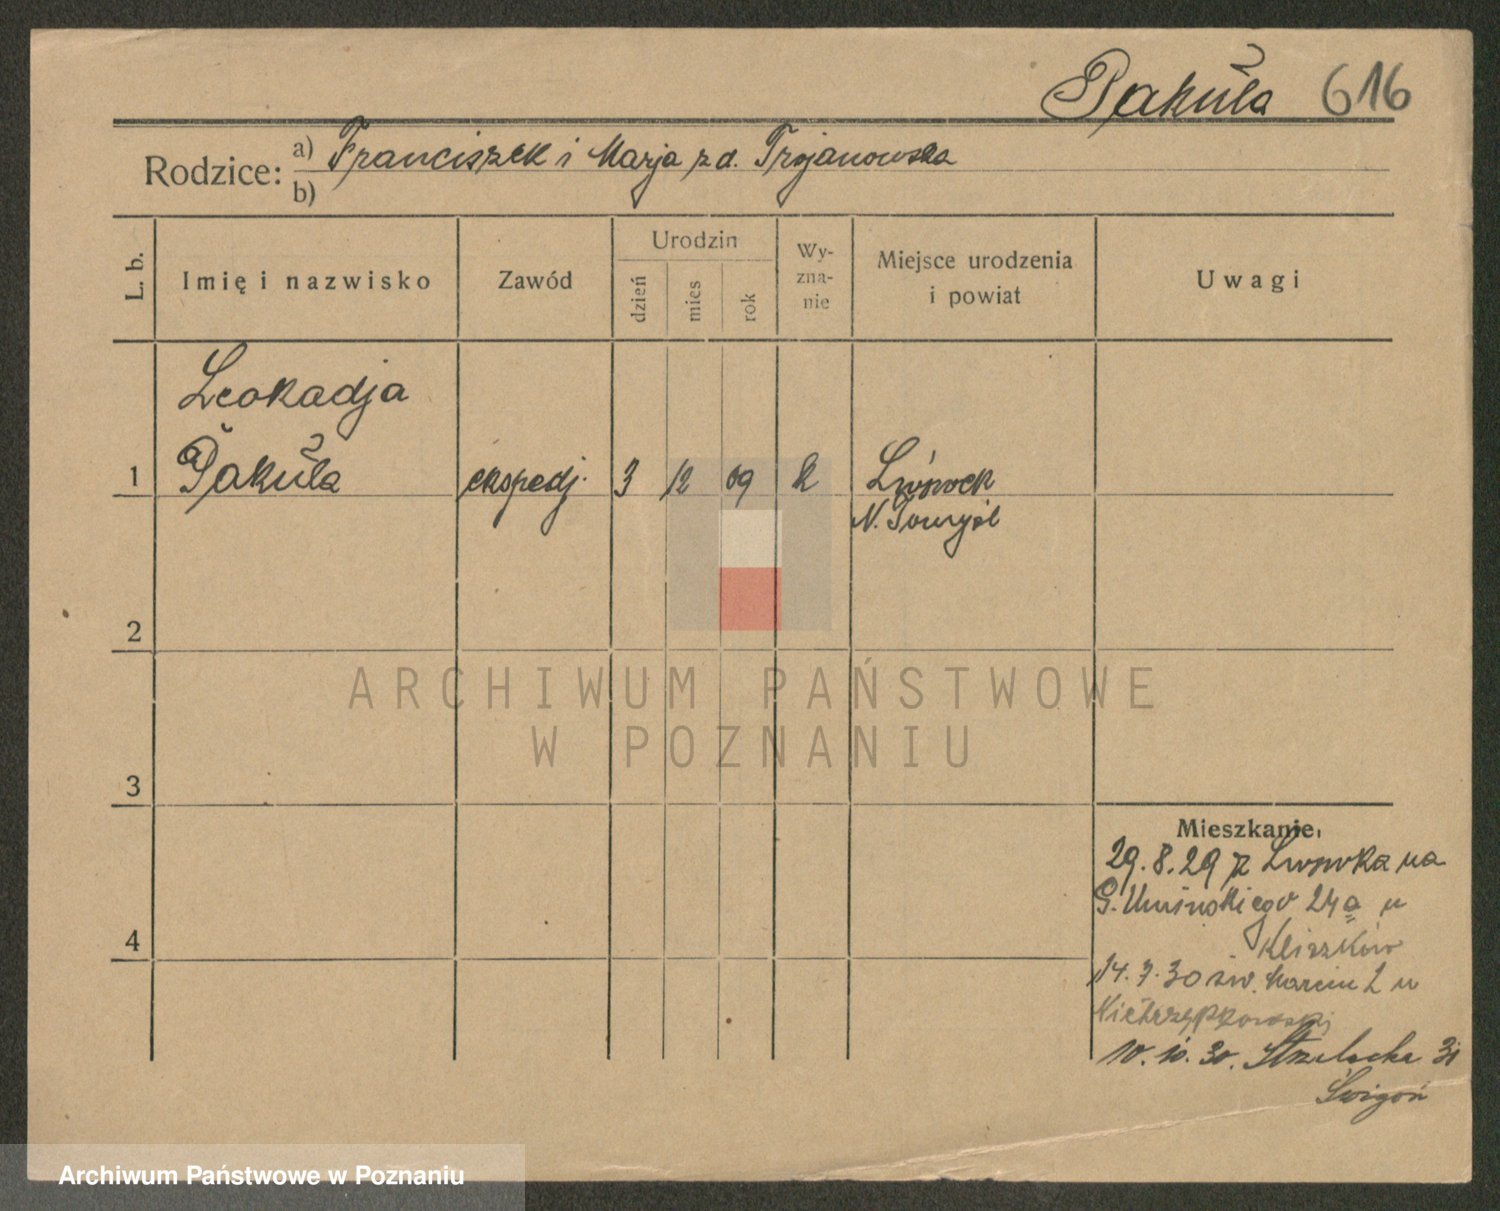 Pakuła 616
Rodzice: a) Franciszek i Marja z d. Trojanowska
b)
L. b.
Imię i nazwisko
Zawód
Urodzin
dzień
mies
rok
Wy-
zna-
nie
Miejsce urodzenia
i powiat
Uwagi
Leokadja
1 Pakuła ekspedj. 3 12 09 k Lwówek
N. Tomyśl
2
ARCHIWUM PAŃSTWOWE
W POZNANIU
3
Mieszkanie.
29.8.29 z Lwówka na
G. Umińskiego 24a u
4
14.7.30 św. Marcin 2 u
10.10.30. Strzelecka 31
Świgoń
Archiwum Państwowe w Poznaniu